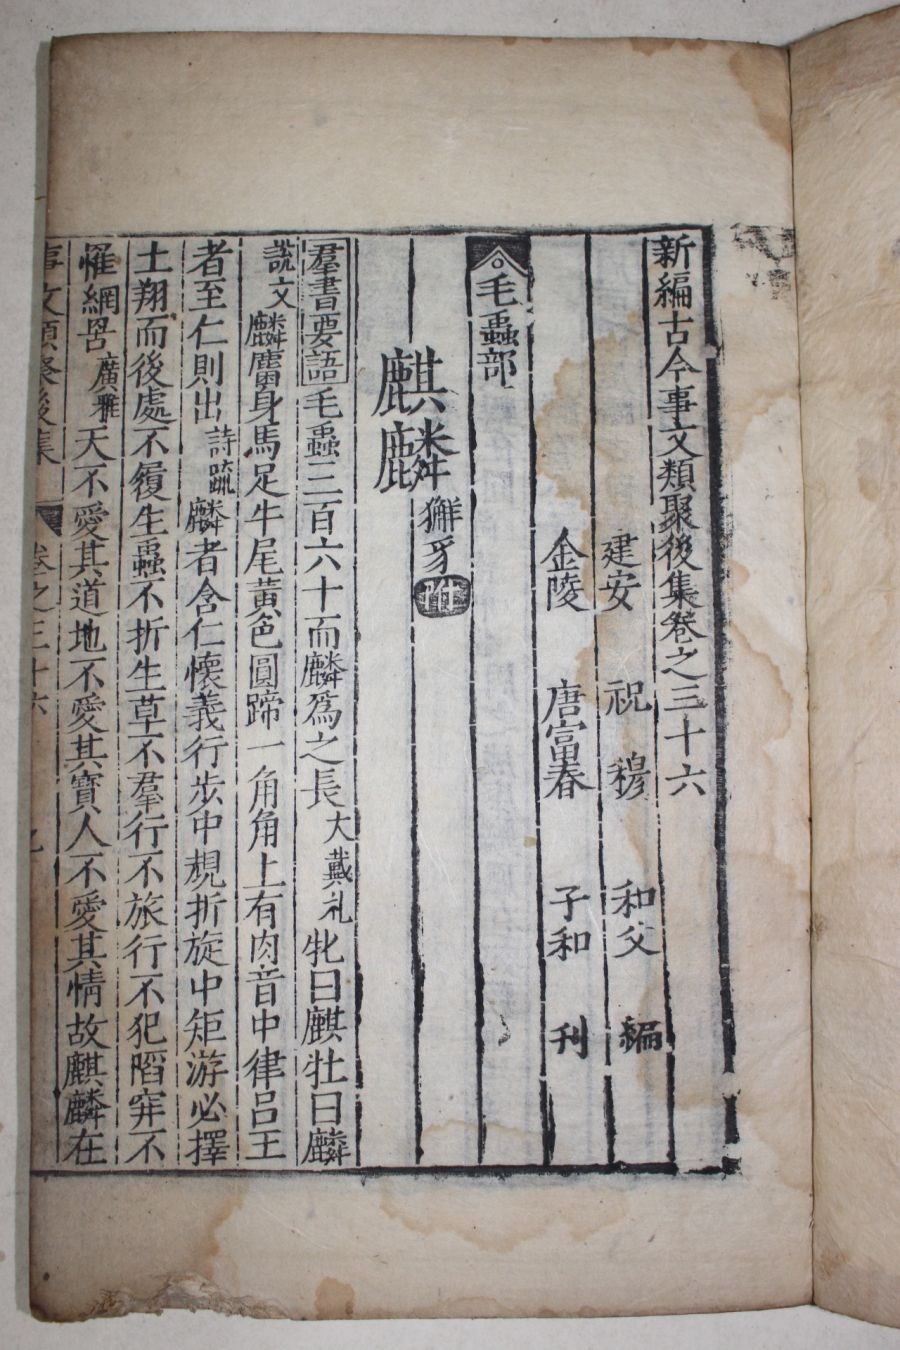 新編古今事文類聚後集卷之三十六
建安 祝穆 和父 編
金陵 唐富春 子和 刊
毛蟲部
麒麟 獬豸附
羣書要語毛蟲三百六十而麟爲之長大戴礼牝曰麒牡曰麟
說文麟麕身馬足牛尾黃色圓蹄一角角上有肉音中律呂王
者至仁則出詩疏麟者含仁懷義行步中規折旋中矩游必擇
土翔而後處不履生蟲不折生草不羣行不旅行不犯陷穽不
罹網罟廣雅天不愛其道地不愛其寶人不愛其情故麒麟在
事文類聚後集 卷之三十六